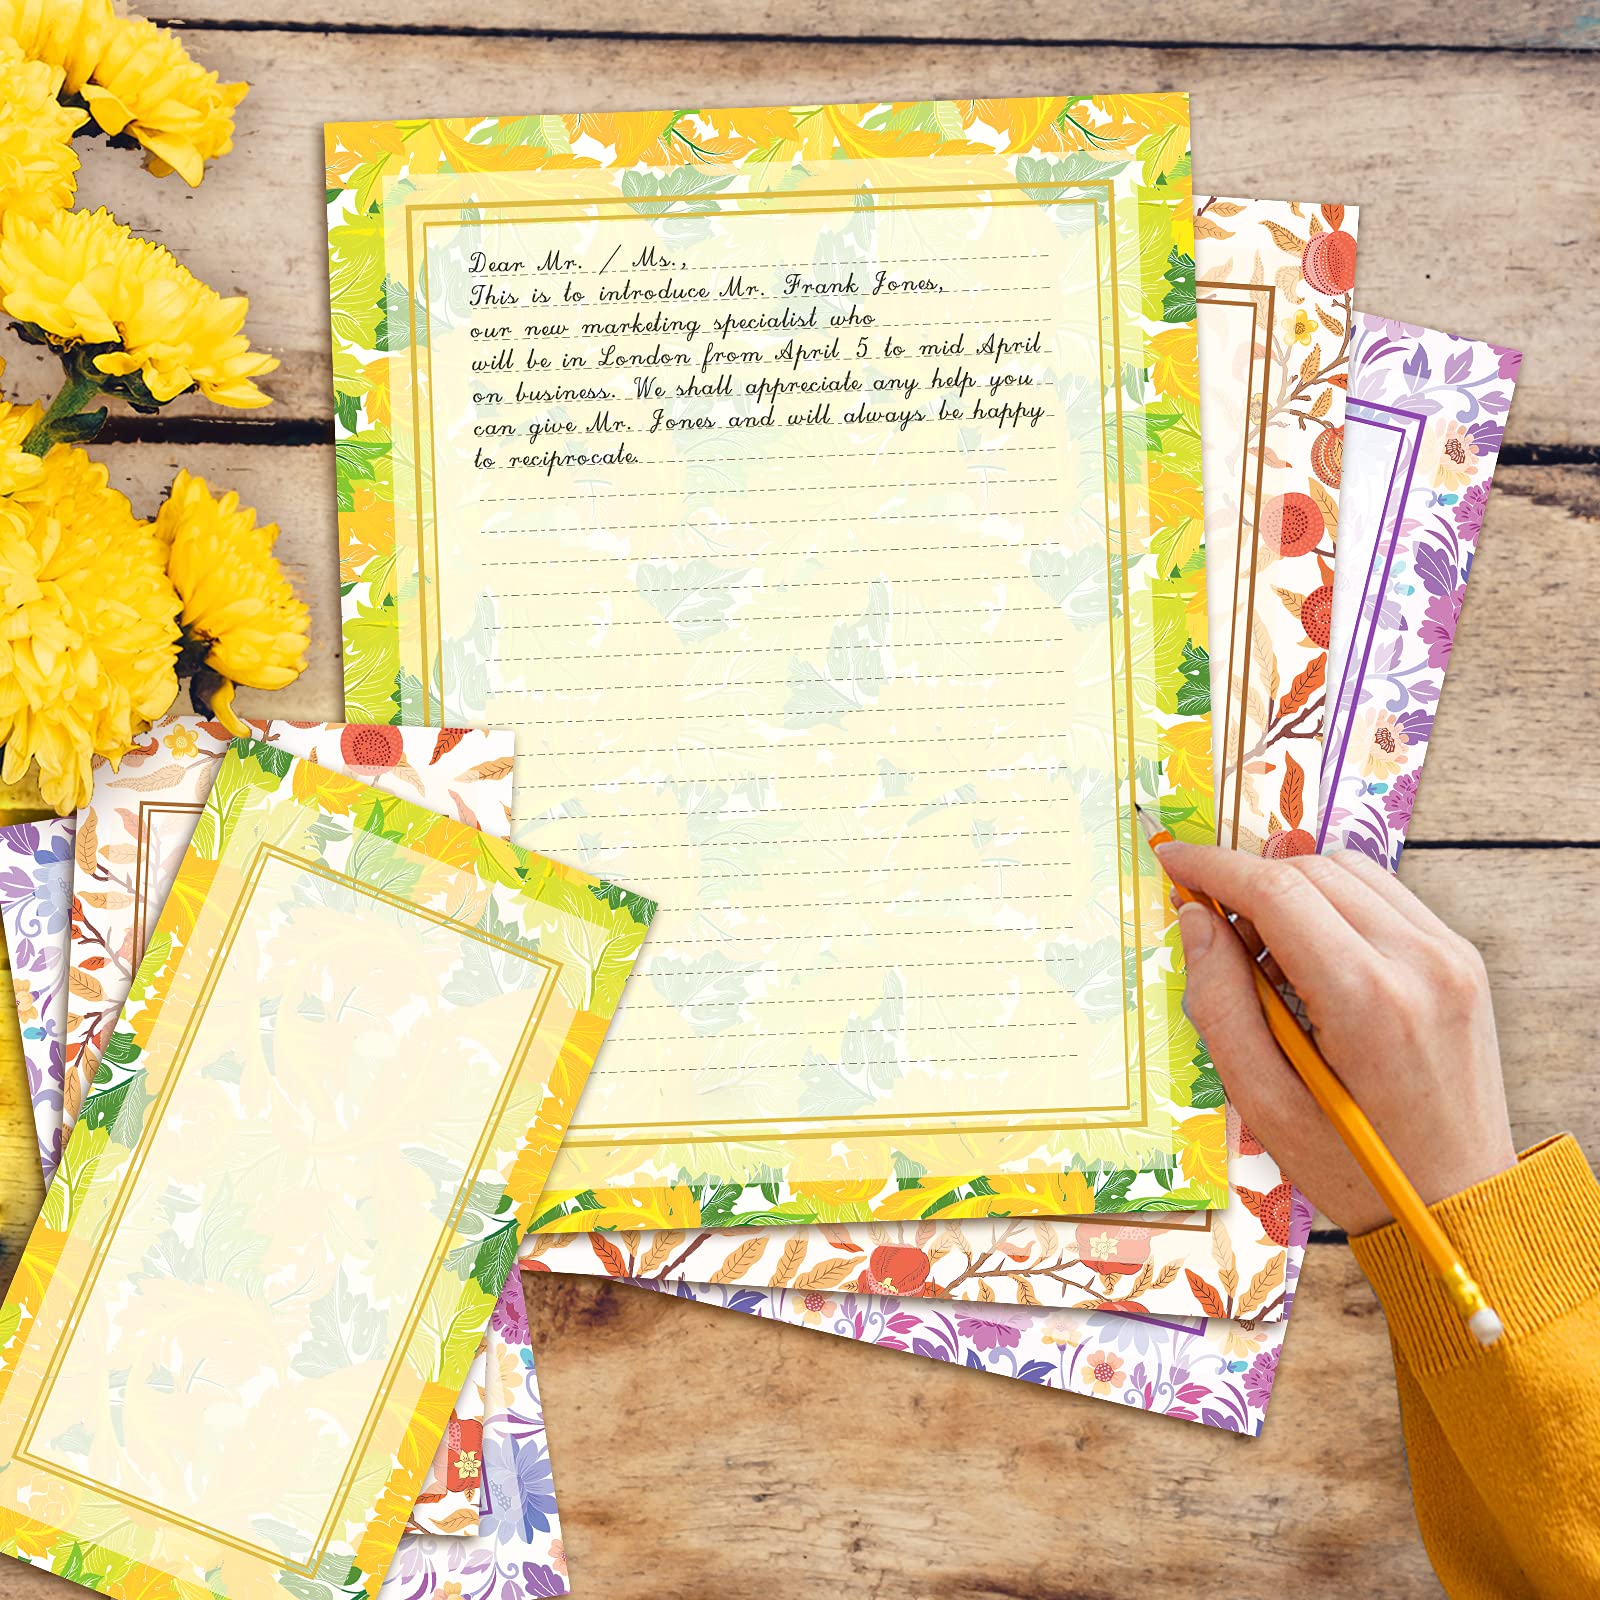 Dear Mr. / Ms.,
This is to introduce Mr. Frank Jones,
our new marketing specialist who
will be in London from April 5 to mid April
on business. We shall appreciate any help you
can give Mr. Jones and will always be happy
to reciprocate.